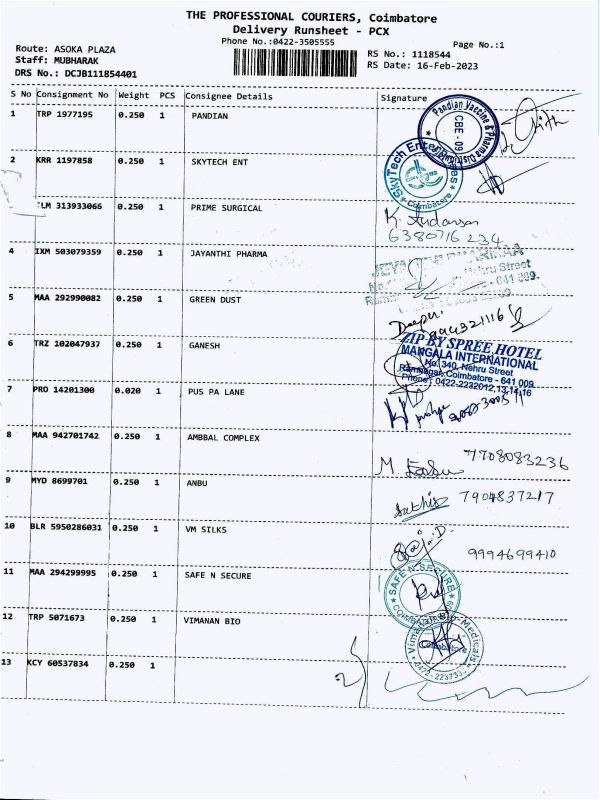 THE PROFESSIONAL COURIERS, Coimbatore
Delivery Runsheet - PCX
Phone No.:0422-3505555
Page No.:1
Route: ASOKA PLAZA
Staff: MUBHARAK
DRS No.: DCJB111854401
RS No.: 1118544
RS Date: 16-Feb-2023
S No Consignment No Weight PCS Consignee Details Signature
1 TRP 1977195 0.250 1 PANDIAN
Pandian Vaccine & Pharma
CBE - 09
2 KRR 1197858 0.250 1 SKYTECH ENT
SkyTech Enterprises
Coimbatore
LM 313933066 0.250 1 PRIME SURGICAL
K.
6380716 234
4 IXM 503079359 0.250 1 JAYANTHI PHARMA
Nehru Street
641 009.
5 MAA 292990082 0.250 1 GREEN DUST
6 TRZ 102047937 0.250 1 GANESH
ZIP BY SPREE HOTEL
MANGALA INTERNATIONAL
No. 340, Nehru Street
Ramnagar, Coimbatore - 641 009.
Phone : 0422-2232012,13,14,16
7 PRO 14201300 0.020 1 PUS PA LANE
8 MAA 942701742 0.250 1 AMBBAL COMPLEX
M.
7708083236
9 MYD 8699701 0.250 1 ANBU
Sathis 7904837217
10 BLR 5950286031 0.250 1 VM SILKS
9994699410
11 MAA 294299995 0.250 1 SAFE N SECURE
SAFE N SECURE
COIMBATORE
12 TRP 5071673 0.250 1 VIMANAN BIO
Coimbatore
13 KCY 60537834 0.250 1